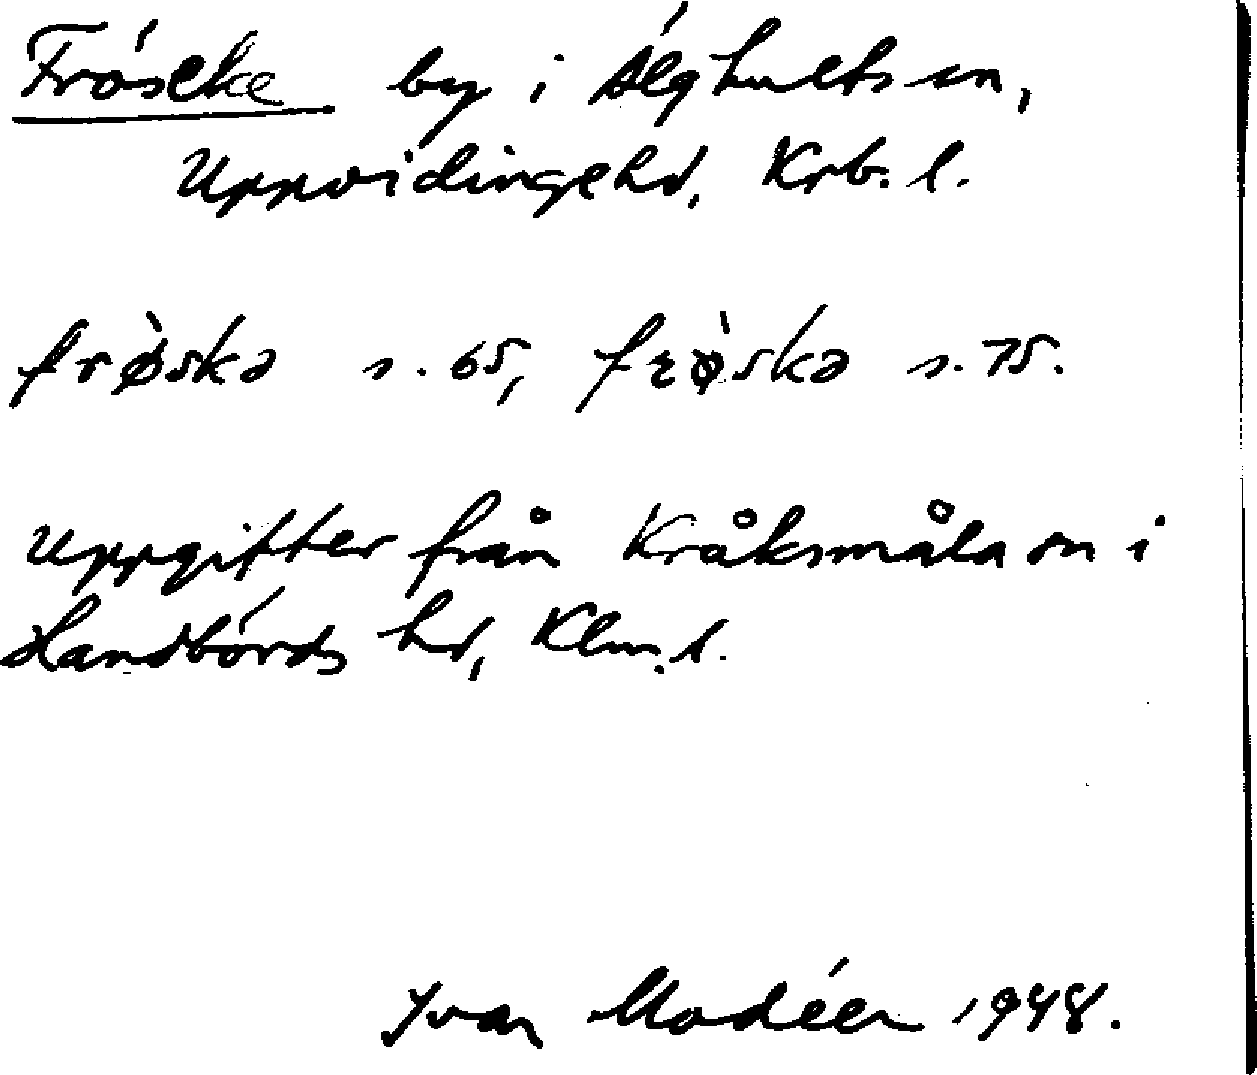 Fröseke by i Älghults sn,
Uppvidinge hd, Krb. l.
frø̀skə s. 65, frø̀skə s. 75.
Uppgifter från Kråksmåla sn i
Handbörds hd, Klm. l.
Ivar Modéer 1948.